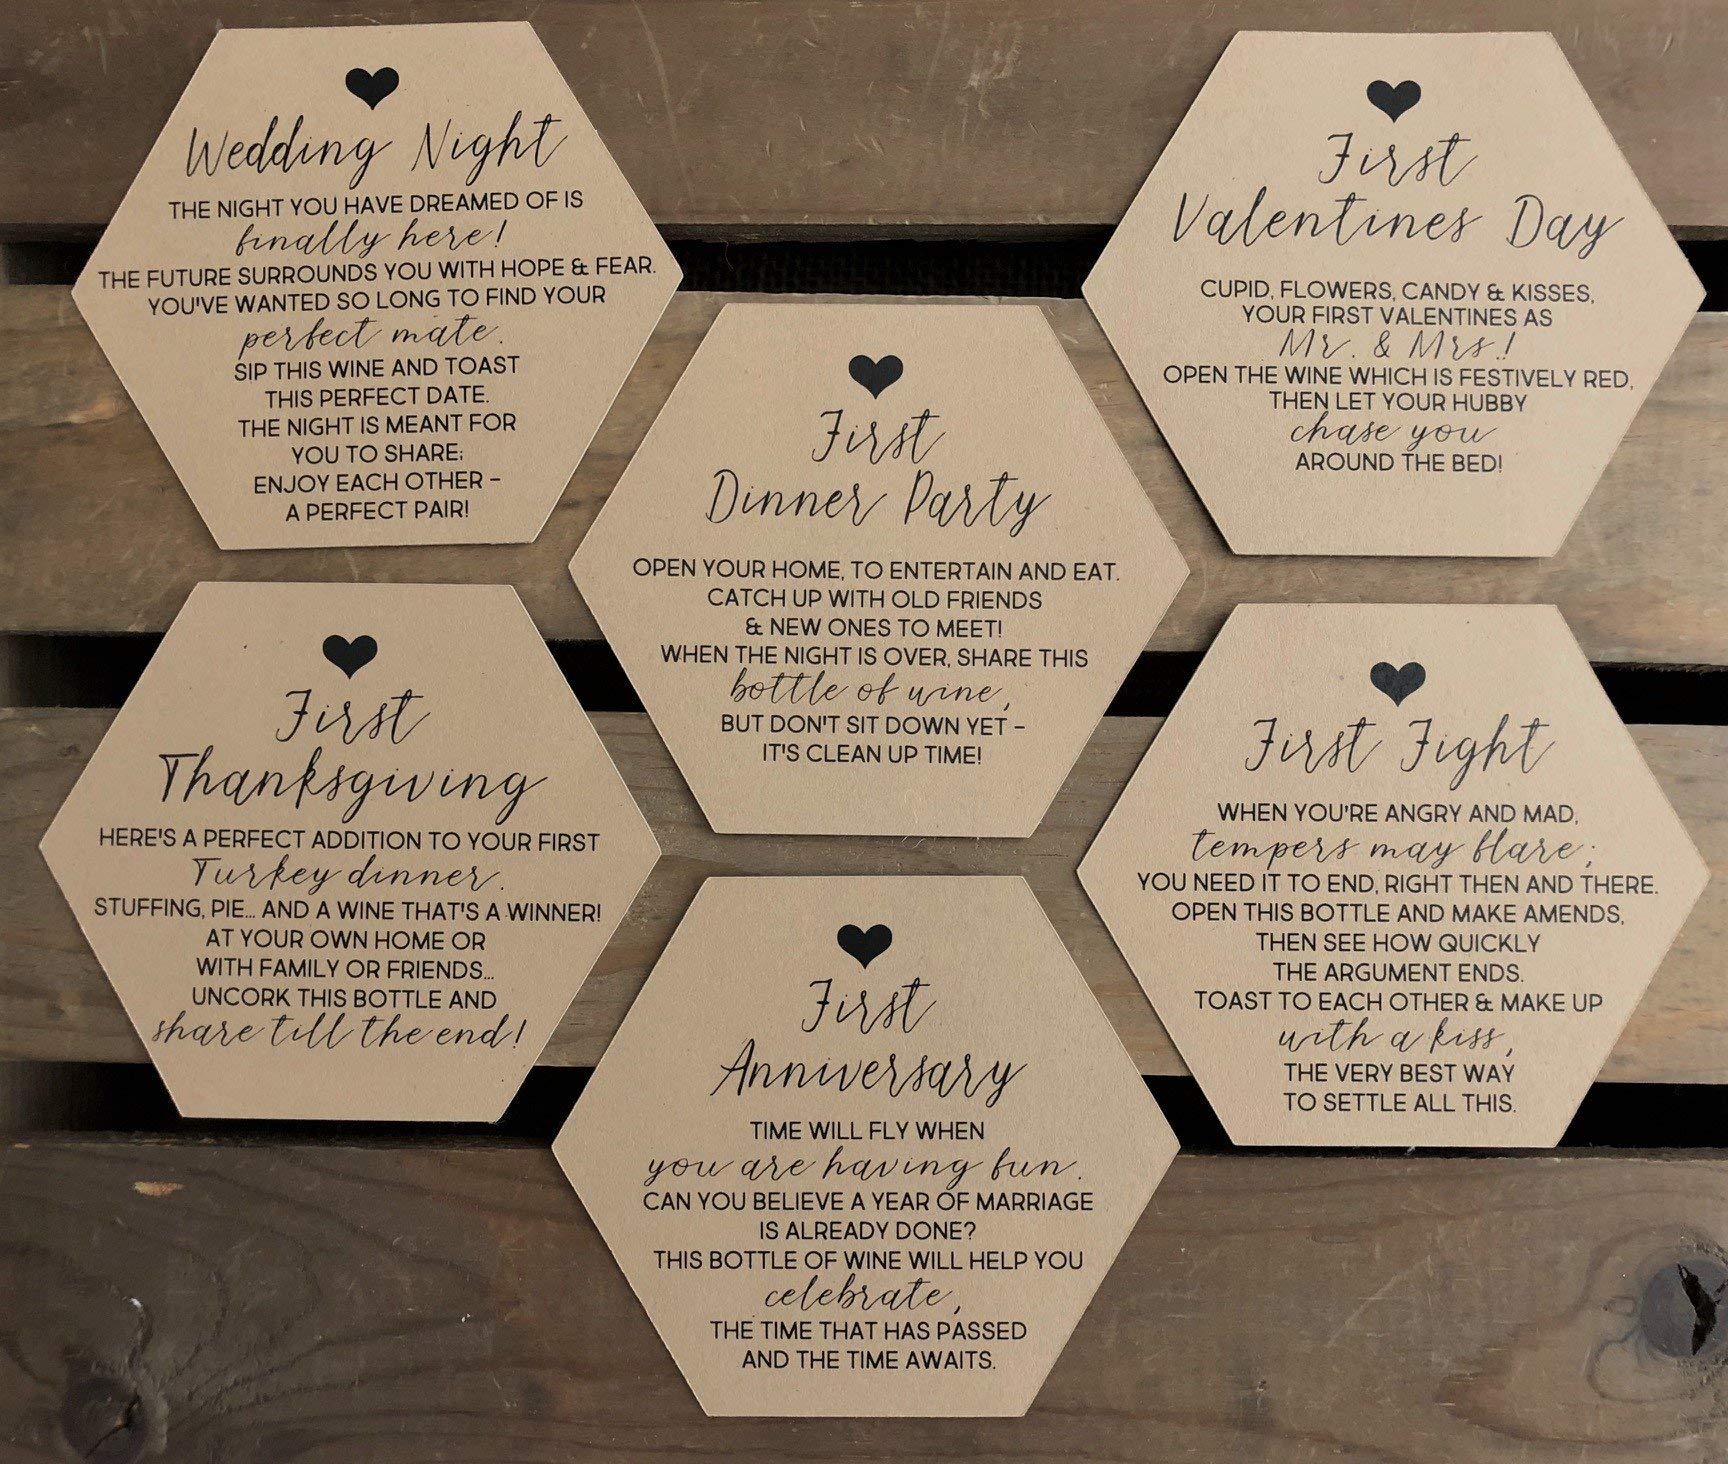 Wedding Night
THE NIGHT YOU HAVE DREAMED OF IS
finally here!
THE FUTURE SURROUNDS YOU WITH HOPE & FEAR.
YOU'VE WANTED SO LONG TO FIND YOUR
perfect mate.
SIP THIS WINE AND TOAST
THIS PERFECT DATE.
THE NIGHT IS MEANT FOR
YOU TO SHARE;
ENJOY EACH OTHER –
A PERFECT PAIR!
First
Valentines Day
CUPID, FLOWERS, CANDY & KISSES,
YOUR FIRST VALENTINES AS
Mr. & Mrs.!
OPEN THE WINE WHICH IS FESTIVELY RED,
THEN LET YOUR HUBBY
chase you
AROUND THE BED!
First
Dinner Party
OPEN YOUR HOME, TO ENTERTAIN AND EAT.
CATCH UP WITH OLD FRIENDS
& NEW ONES TO MEET!
WHEN THE NIGHT IS OVER, SHARE THIS
bottle of wine,
BUT DON'T SIT DOWN YET –
IT'S CLEAN UP TIME!
First
Thanksgiving
HERE'S A PERFECT ADDITION TO YOUR FIRST
Turkey dinner.
STUFFING, PIE... AND A WINE THAT'S A WINNER!
AT YOUR OWN HOME OR
WITH FAMILY OR FRIENDS...
UNCORK THIS BOTTLE AND
share till the end!
First Fight
WHEN YOU'RE ANGRY AND MAD,
tempers may flare;
YOU NEED IT TO END, RIGHT THEN AND THERE.
OPEN THIS BOTTLE AND MAKE AMENDS,
THEN SEE HOW QUICKLY
THE ARGUMENT ENDS.
TOAST TO EACH OTHER & MAKE UP
with a kiss,
THE VERY BEST WAY
TO SETTLE ALL THIS.
First
Anniversary
TIME WILL FLY WHEN
you are having fun.
CAN YOU BELIEVE A YEAR OF MARRIAGE
IS ALREADY DONE?
THIS BOTTLE OF WINE WILL HELP YOU
celebrate,
THE TIME THAT HAS PASSED
AND THE TIME AWAITS.